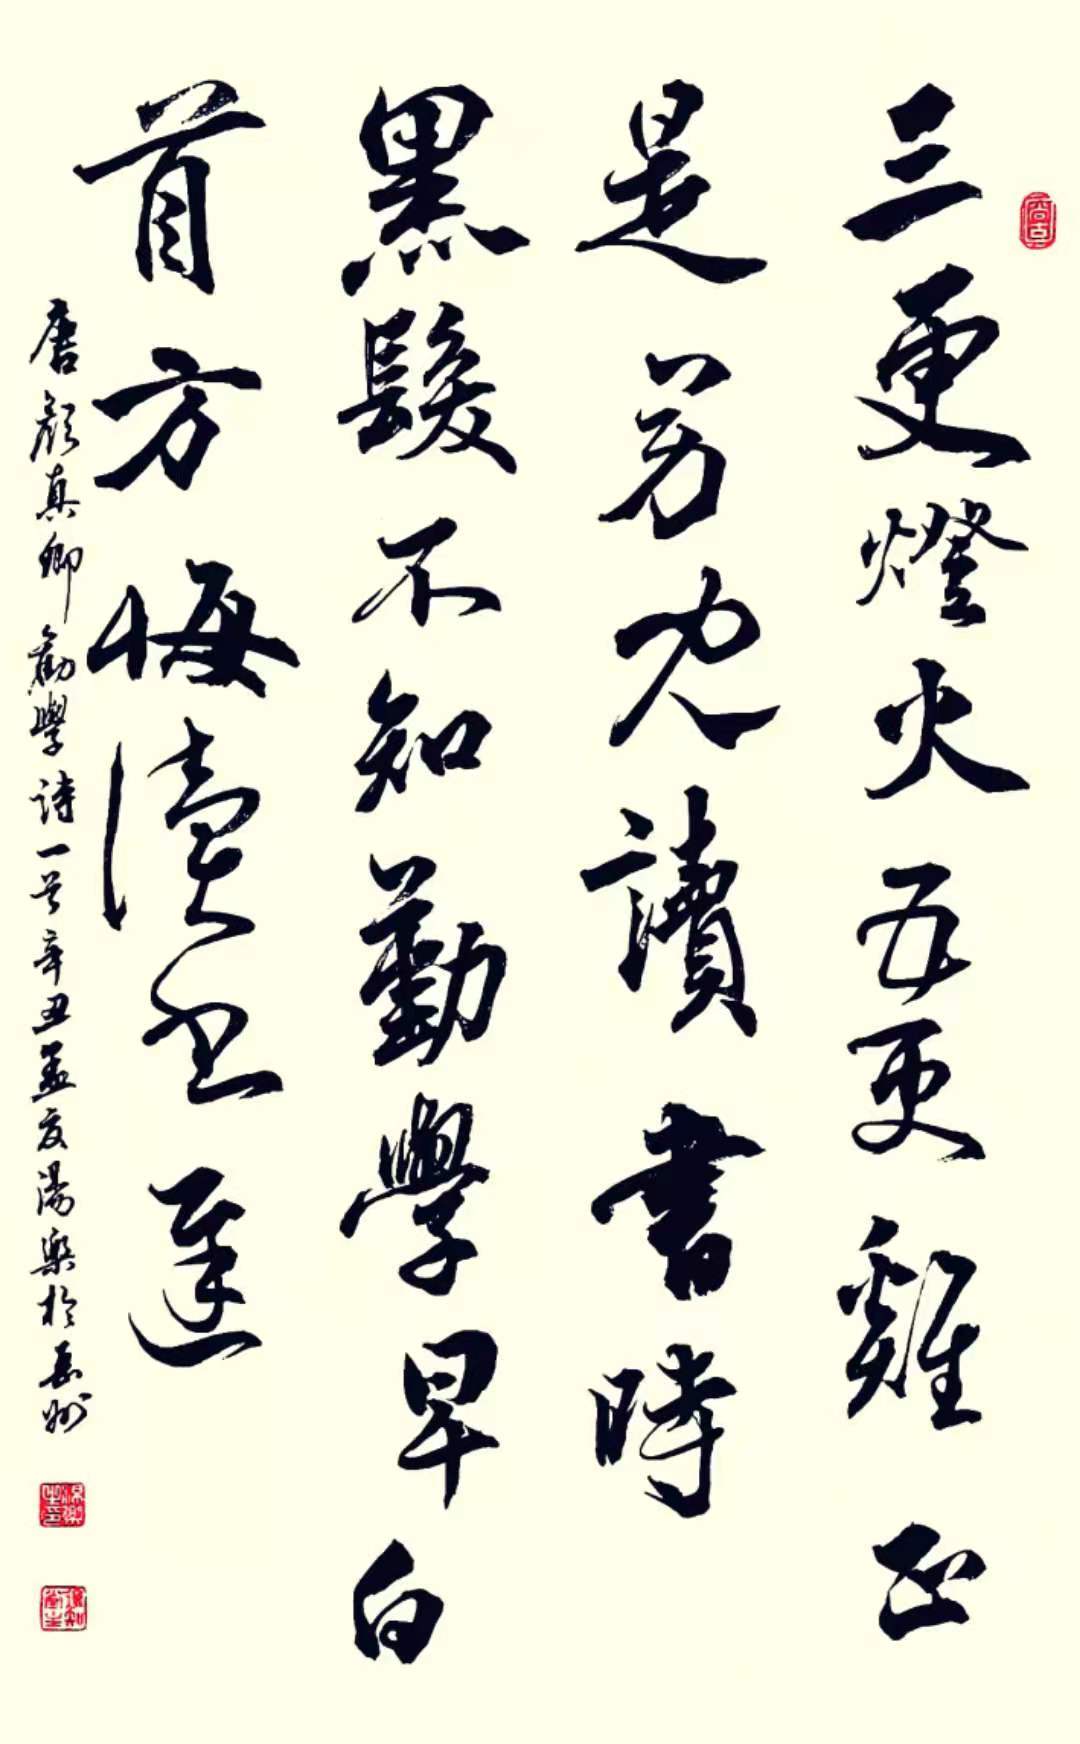 三更燈火五更雞正
是男兒讀書時
黑髮不知勤學早白
首方悔讀书遲
唐顏真卿勸學詩一首辛丑孟夏湯樂於岳州
尚古